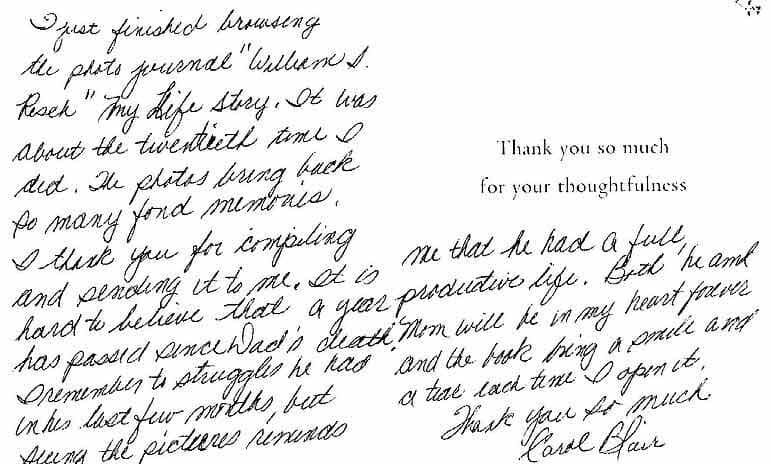 I just finished browsing
the photo journal "William S.
Resch" My Life Story. It was
about the twentieth time I
did. The photos bring back
so many fond memories.
I thank you for compiling
and sending it to me. It is
hard to believe that a year
has passed since Dad's death.
I remember to struggles he had
in his last few months, but
seeing the pictures reminds
Thank you so much
for your thoughtfulness
me that he had a full,
productive life. Both he and
Mom will be in my heart forever
and the book bring a smile and
a tear each time I open it.
Thank you so much.
Carol Blair